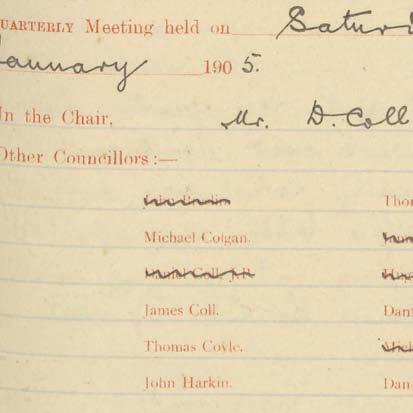 QUARTERLY Meeting held on Satur
January 1905.
In the Chair, Mr. D. Coll
Other Councillors:—
Tho
Michael Colgan.
Daniel Coll, J.P. Hug
James Coll. Dan
Thomas Coyle. Mich
John Harkin. Dan